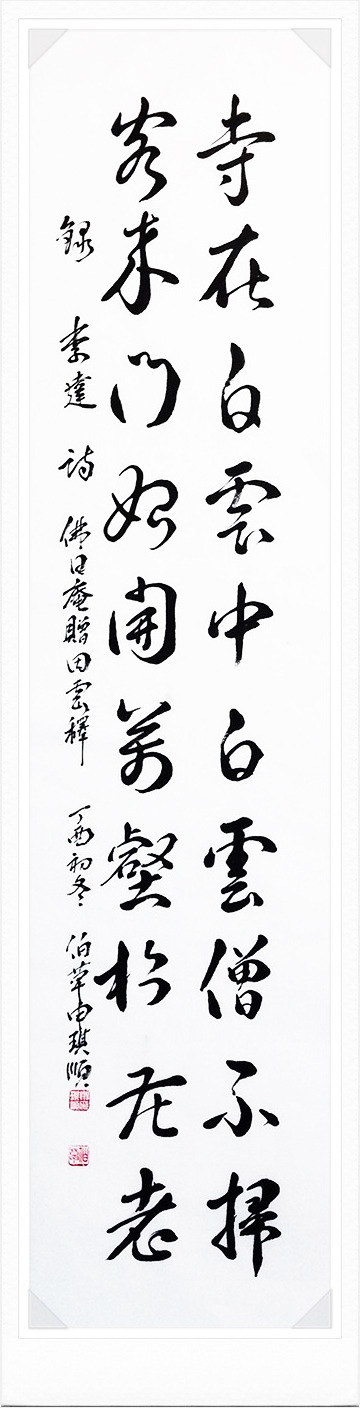 寺在白雲中白雲僧不掃
客来門始開萬壑松花老
録 李達 詩 佛日庵贈因雲釋 丁酉初冬 伯華由琪順